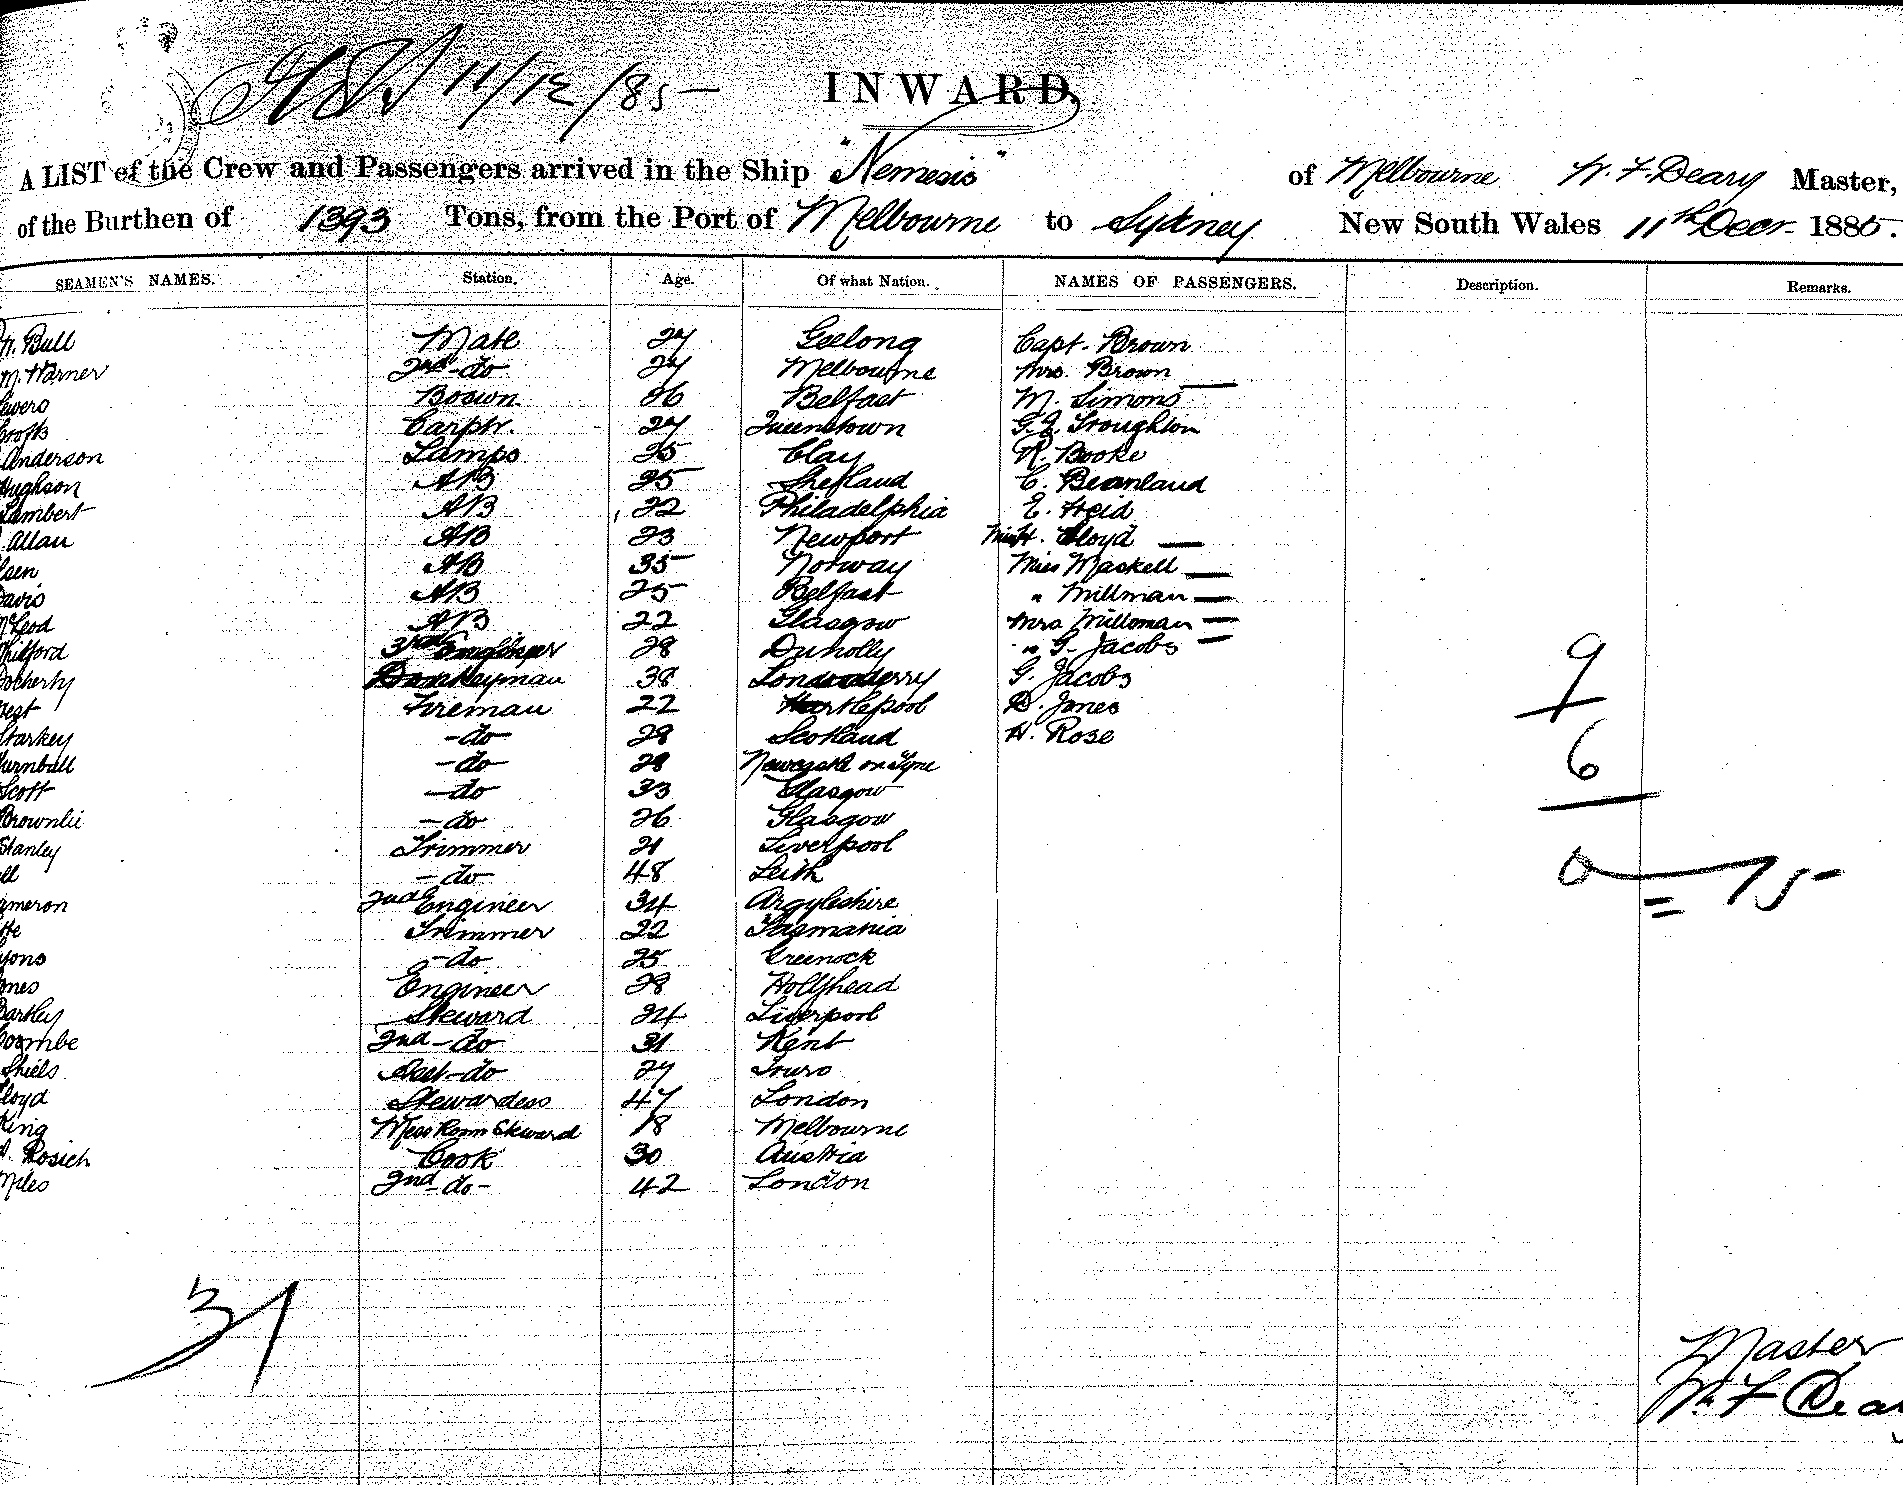 11/12/85
INWARD.
A LIST of the Crew and Passengers arrived in the Ship "Nemesis" of Melbourne W. F. Deary Master,
of the Burthen of 1393 Tons, from the Port of Melbourne to Sydney New South Wales 11th Decr. 1885.
SEAMEN'S NAMES. Station. Age. Of what Nation. NAMES OF PASSENGERS. Description. Remarks.
Bull Mate 27 Geelong Capt. Brown
M. Warner 2nd -do 27 Melbourne Mrs. Brown —
ewers Boswn 26 Belfast M. Simons
rofts Carptr. 27 Queenstown G. E. Troughton
Anderson Lamps 25 Clay R. Booke
Hughson AB 25 Shetland C. Beanland
Lambert AB 22 Philadelphia E. Heid
Allan AB 23 Newport H. Lloyd —
lsen AB 35 Norway Miss Maskell —
Davis AB 25 Belfast " Millman —
McLeod AB 22 Glasgow Mrs Millman —
Milford 3rd Engineer 28 Dunolly " G. Jacobs — 9
Docherty Donkeyman 38 Londonderry G. Jacobs
West Fireman 22 Hartlepool D. Jones
Starkey -do- 28 Scotland H. Rose 6
Turnbull -do 28 Newcastle on Tyne
Scott -do 33 Glasgow
Brownlie -do 26 Glasgow
Stanley Trimmer 21 Liverpool
ell -do 48 Leith 0 — 15
ameron 2nd Engineer 34 Argyleshire
tte Trimmer 22 Tasmania
yons -do 25 Greenock
ones Engineer 28 Hollyhead
Bartley Steward 24 Liverpool
Coombe 2nd -do 31 Kent
Shiels Asst -do 27 Truro
Lloyd Stewardess 47 London
King Mess Room Steward 18 Melbourne
Rosich Cook 30 Austria
Miles 2nd -do- 42 London
31
Master
W. F. Dea